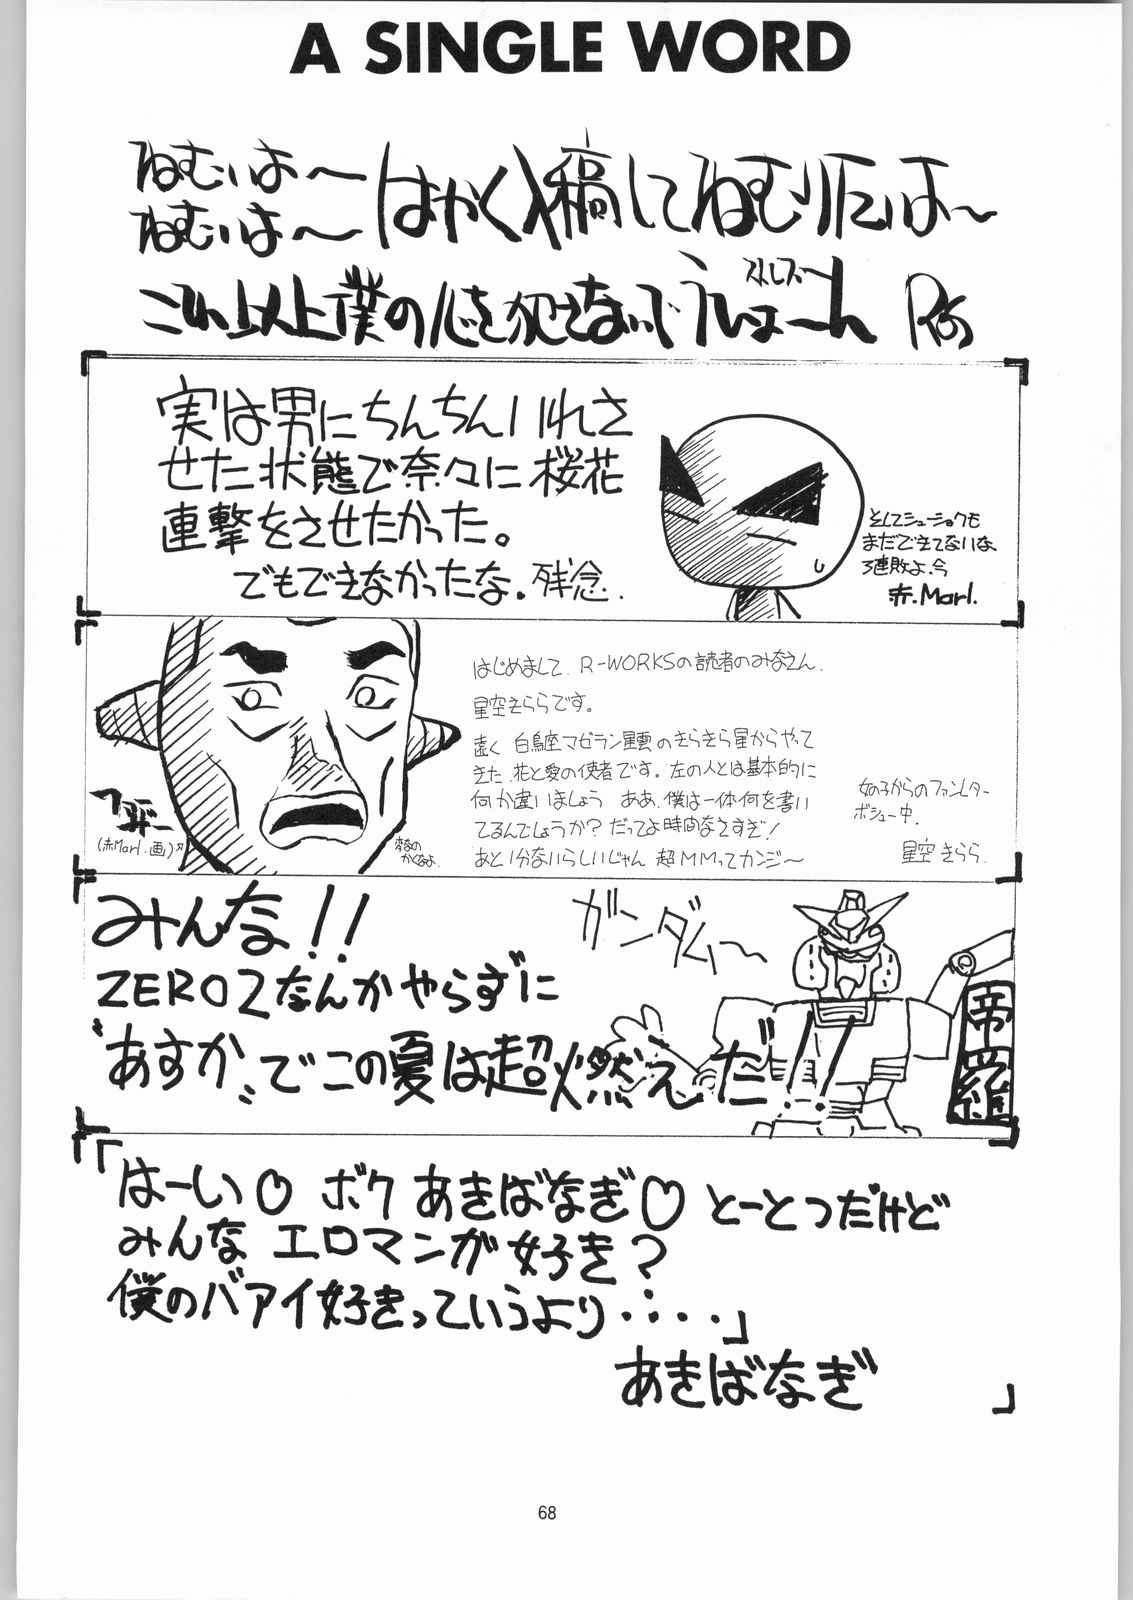 A SINGLE WORD
ねむいよ〜
ねむいよ〜
はやく入稿してねむりたいよ〜
これ以上僕の心を犯さないで
実は男にちんちんいれさ
せた状態で奈々に桜花
連撃をさせたかった。
でもできなかったな。残念.
そしてシューショクも
まだできてないな、
3連敗よ.今
赤.Marl.
はじめまして、R-WORKSの読者のみなさん、
星空きららです。
遠く 白鳥座マゼラン星雲のきらきら星からやって
きた、花と愛の使者です。左の人とは基本的に
何か違いましょう ああ、僕は一体何を書い
てるんでしょうか? だってよ時間なさすぎ!
あと1分ないらしいじゃん 超MMってカンジ〜
女の子からのファンレター
ボシュー中.
星空 きらら.
(赤Marl.画)
みんな!!
ガンダム〜
ZERO2なんかやらずに
"あすか"でこの夏は超燃えだ!!
帝羅
「はーい♡ ボク あきばなぎ♡ とーとつだけど
みんな エロマンが好き?
僕のバアイ好きっていうより・・・・」
あきばなぎ
68